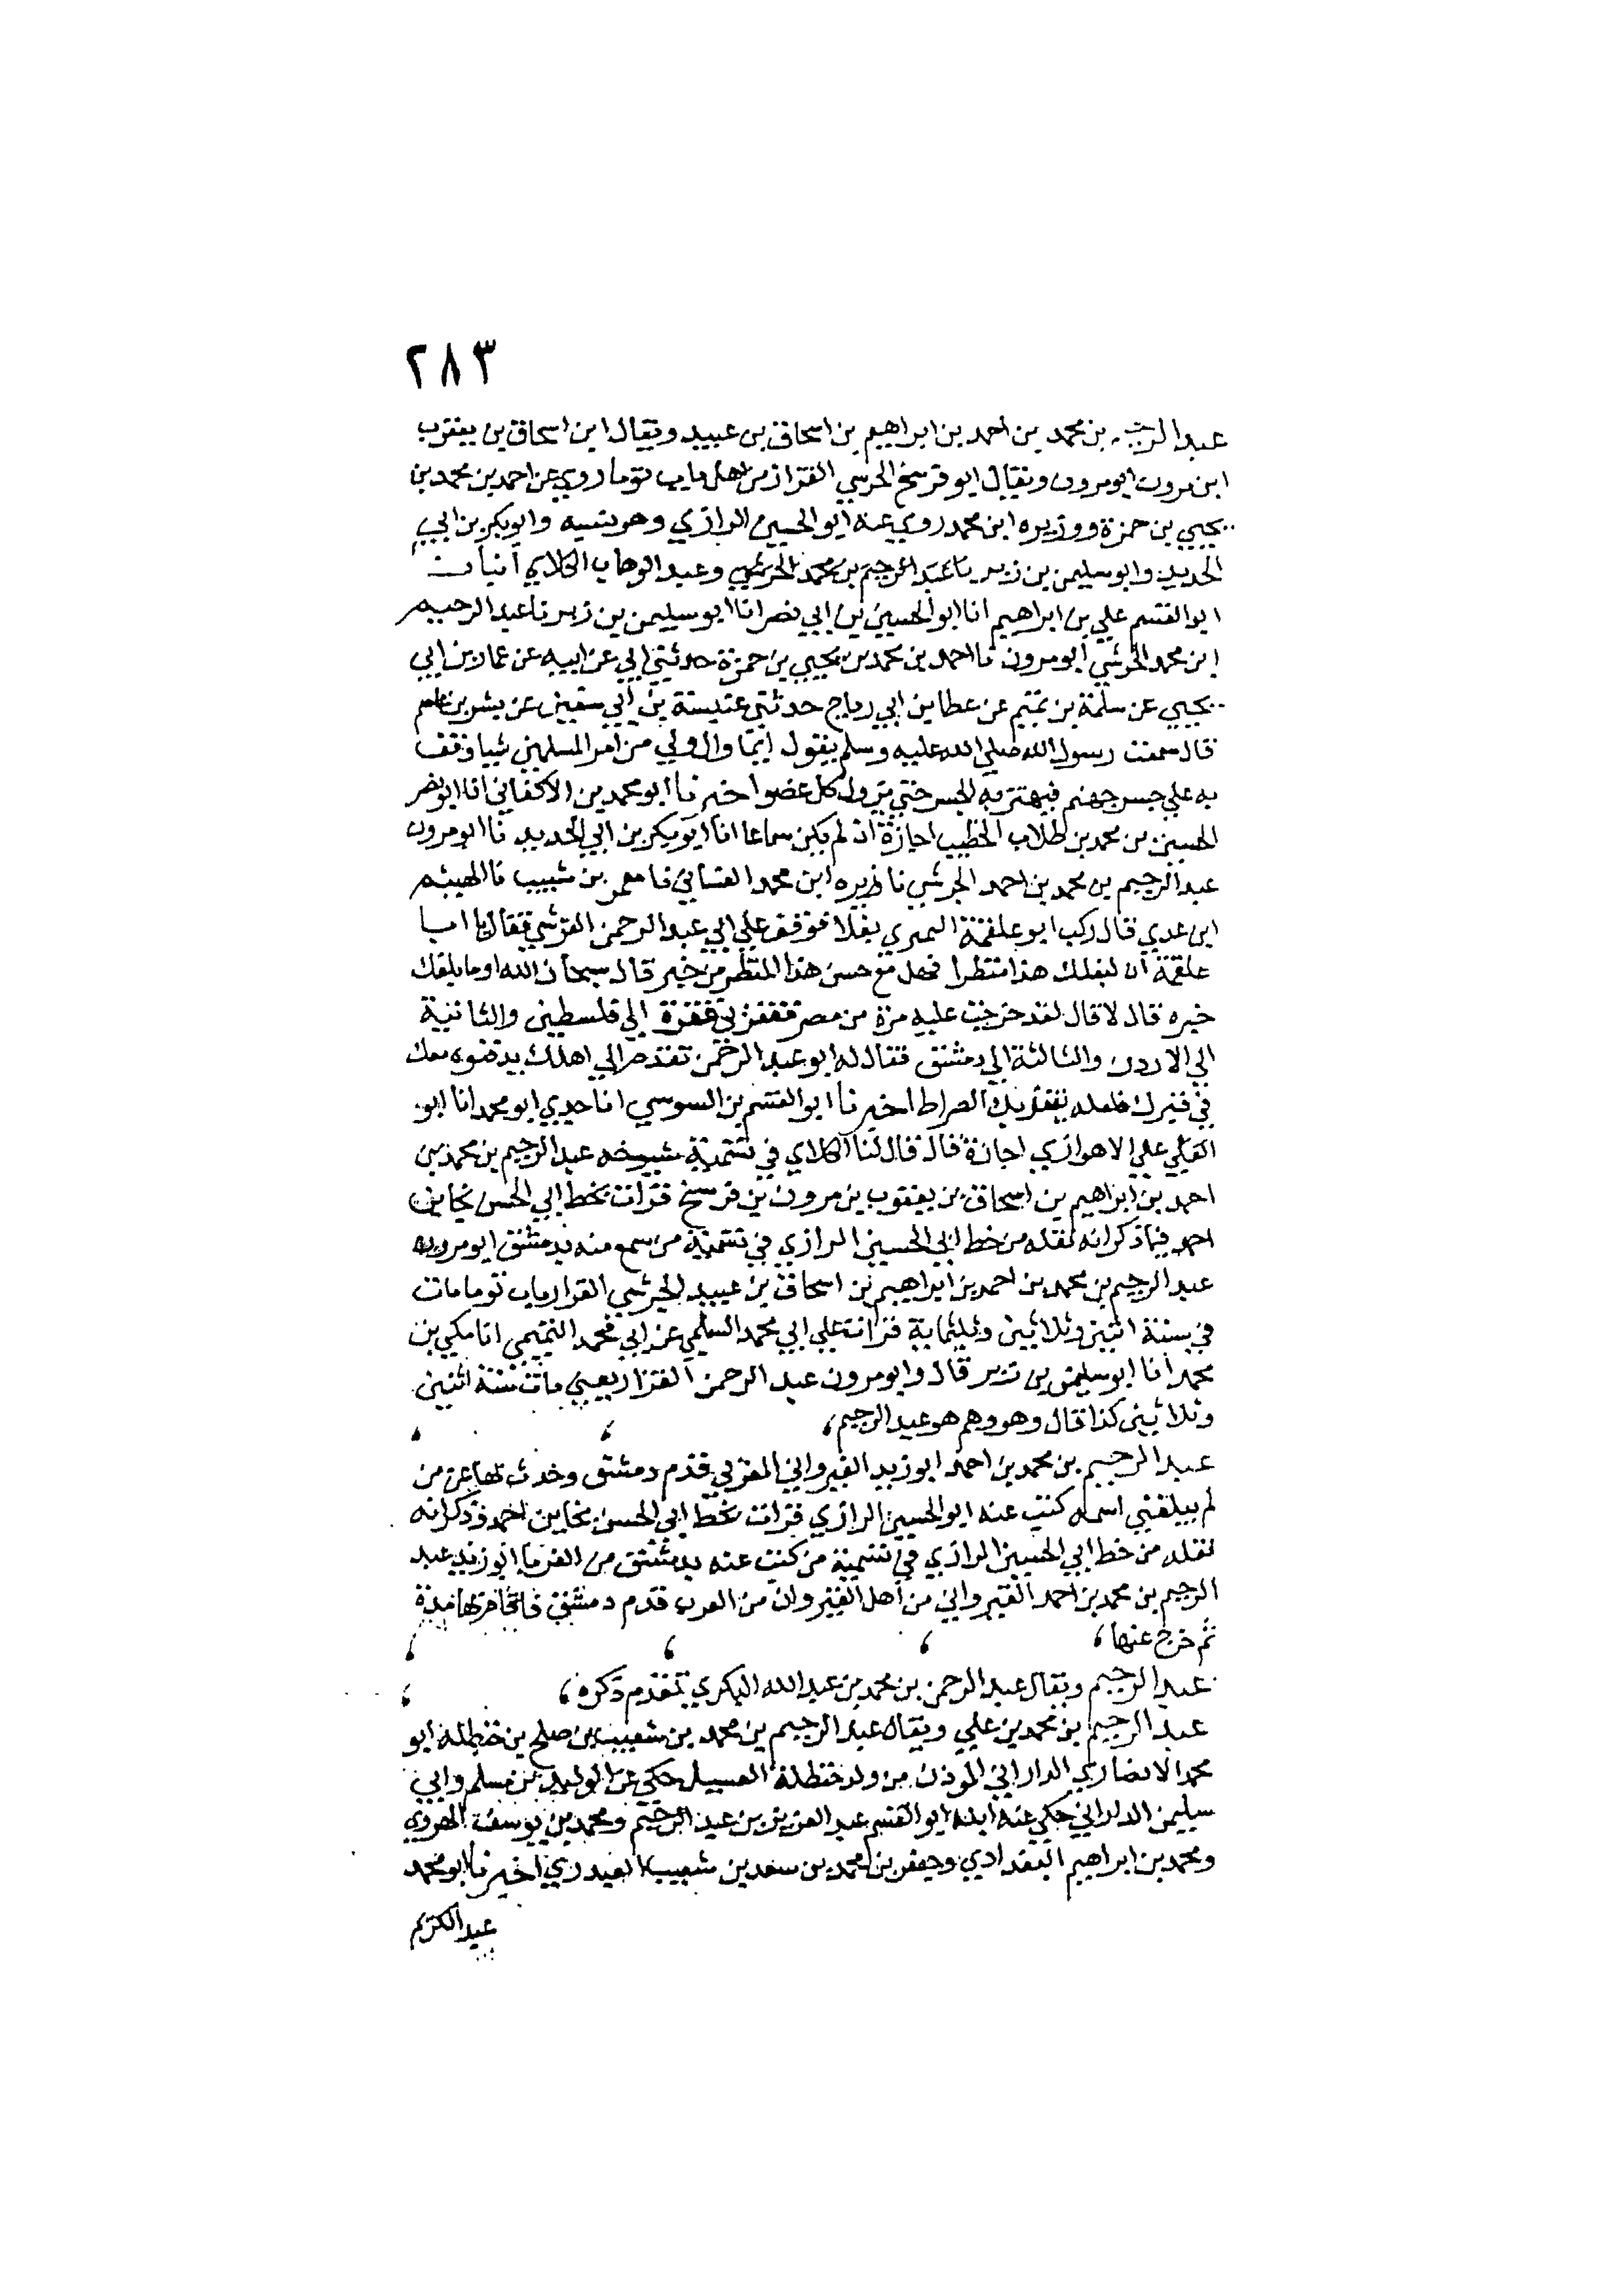 ٢٨٣
عبد الرحيم بن محمد بن احمد بن ابراهيم بن اسحاق بن عبيد ويقال ابن اسحاق بن يعقوب
ابن مرون ابو مرون ويقال ابو فرسخ الجرشي القزاز من اهل باب توما روي عن احمد بن محمد بن
يحيي بن حمزة ووزيره ابن محمد روي عنه ابو الحسين الرازي وهو نسبه وابو بكر بن ابي
الحديد وابو سليمن بن زبر نا عبد الرحيم بن محمد الجرشي وعبد الوهاب الكلابي انبانا
ابو القسم علي بن ابراهيم انا ابو الحسين بن ابي نصر انا ابو سليمن بن زبر نا عبد الرحيم
ابن محمد الجرشي ابو مرون نا احمد بن محمد بن يحيي بن حمزة حدثني ابي عن ابيه عن عمار بن ابي
يحيي عن سلمة بن تميم عن عطا بن ابي رباح حدثني عنبسة بن ابي سفين عن بشر بن عاصم
قال سمعت رسول الله صلي الله عليه وسلم يقول ايما وال ولي من امر المسلمين شيا وقف
به علي جسر جهنم فيهتز به الجسر حتي يزول كل عضو اخبرنا ابو محمد بن الاكفاني انا ابو نصر
الحسين بن محمد بن طلاب الخطيب اجازة ان لم يكن سماعا انا ابو بكر بن ابي الحديد نا ابو مرون
عبد الرحيم بن محمد بن احمد الجرشي نا وزيره ابن محمد الغساني نا معمر بن شبيب نا الهيثم
ابن عدي قال ركب ابو علقمة النميري بغلا فوقف علي ابي عبد الرحمن القرشي فقال يا ابا
علقمة ان لبغلك هذا منظرا فهل مع حسن هذا المنظر من خير قال سبحان الله او ما بلغك
خبره قال لا قال لقد خرجت عليه مرة من مصر فقفز بي قفزة الي فلسطين والثانية
الي الاردن والثالثة الي دمشق فقال له ابو عبد الرحمن تقدم الي اهلك يدفنوه معك
في قبرك فلعله يقفز بك الصراط اخبرنا ابو القسم بن السوسي انا جدي ابو محمد انا ابو
علي الاهوازي اجازة قال قال لنا الكلابي في تسمية شيوخه عبد الرحيم بن محمد بن
احمد بن ابراهيم بن اسحاق بن يعقوب بن مرون بن فرسخ قرات بخط ابي الحسن نجا بن
احمد فيما ذكر انه نقله من خط ابي الحسين الرازي في تسمية من سمع منه بدمشق ابو مرون
عبد الرحيم بن محمد بن احمد بن ابراهيم بن اسحاق بن عبيد الجرشي القزاز باب توما مات
في سنة اثنين وثلاثين وثلثماية قرات علي ابي محمد السلمي عن ابي محمد التميمي انا مكي بن
محمد انا ابو سليمن بن زبر قال وابو مرون عبد الرحمن القزاز يعني مات سنة اثنين
وثلاثين كذا قال وهو وهم هو عبد الرحيم
عبد الرحيم بن محمد بن احمد ابو زيد القيرواني المغربي قدم دمشق وحدث بها عن من
لم يبلغني اسمه كتب عنه ابو الحسين الرازي قرات بخط ابي الحسن نجا بن احمد وذكر انه
نقله من خط ابي الحسين الرازي في تسمية من كتب عنه بدمشق من الغربا ابو زيد عبد
الرحيم بن محمد بن احمد القيرواني من اهل القيروان من العرب قدم دمشق فاقام بها مدة
ثم خرج عنها
عبد الرحيم ويقال عبد الرحمن بن محمد بن عبد الله البكري تقدم ذكره
عبد الرحيم بن محمد بن علي ويقال عبد الرحيم بن محمد بن شعيب بن صلح بن حنظلة ابو
محمد الانصاري الداراني الموذن من ولد حنظلة الغسيل حكي عن الوليد بن مسلم وابي
سليمن الداراني حكي عنه ابنه ابو القسم عبد العزيز بن عبد الرحيم ومحمد بن يوسف الهروي
ومحمد بن ابراهيم البغدادي وجعفر بن احمد بن سعد بن شعيب العبدري اخبرنا ابو محمد
عبد الكريم